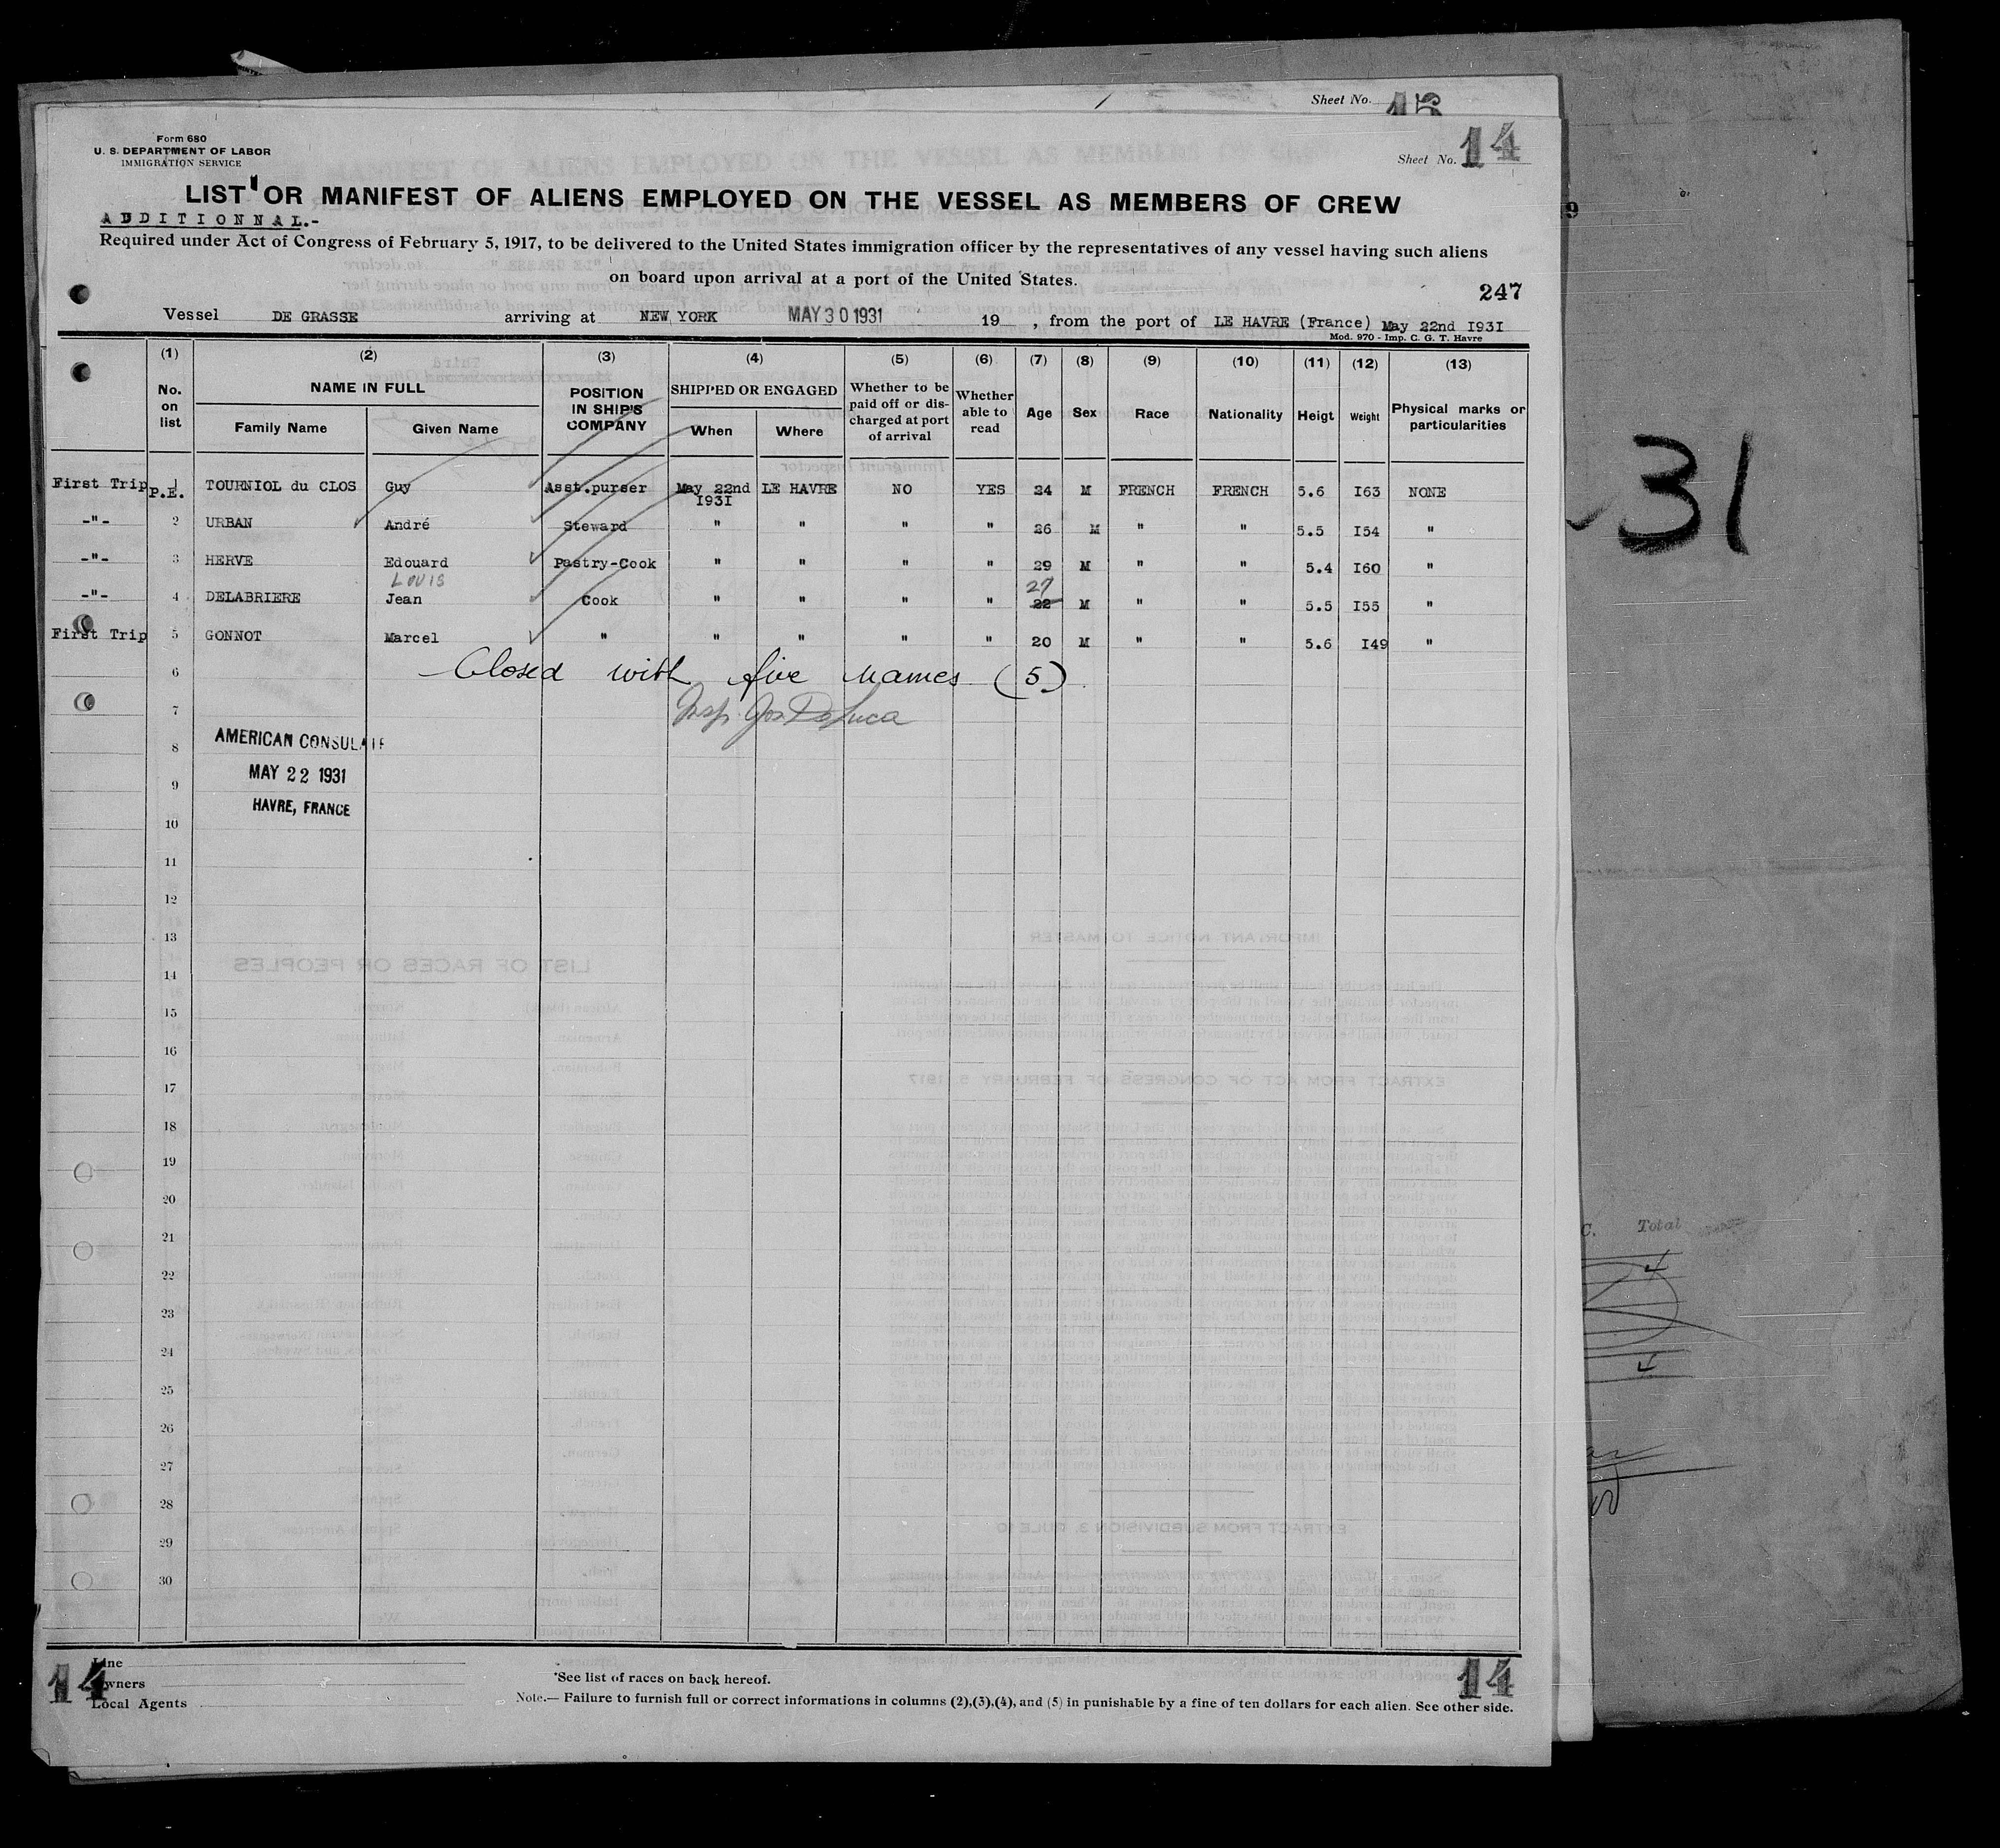 Sheet No. 15
Form 680
U. S. DEPARTMENT OF LABOR
IMMIGRATION SERVICE
Sheet No. 14
LIST OR MANIFEST OF ALIENS EMPLOYED ON THE VESSEL AS MEMBERS OF CREW
ADDITIONNAL.-
Required under Act of Congress of February 5, 1917, to be delivered to the United States immigration officer by the representatives of any vessel having such aliens
on board upon arrival at a port of the United States.
247
Vessel DE GRASSE arriving at NEW YORK MAY 30 1931 19 , from the port of LE HAVRE (France) May 22nd I93I
Mod. 970 - Imp. C. G. T. Havre
(1) (2) (3) (4) (5) (6) (7) (8) (9) (10) (11) (12) (13)
No. on list NAME IN FULL Family Name Given Name POSITION IN SHIP'S COMPANY SHIPPED OR ENGAGED When Where Whether to be paid off or discharged at port of arrival Whether able to read Age Sex Race Nationality Heigt Weight Physical marks or particularities
First Trip 1 P.E. TOURNIOL du CLOS Guy Asst.purser May 22nd I93I LE HAVRE NO YES 24 M FRENCH FRENCH 5.6 I63 NONE
-"- 2 URBAN André Steward " " " " 26 M " " 5.5 I54 "
-"- 3 HERVE Edouard Pastry-Cook " " " " 29 M " " 5.4 I60 "
Louis 27
-"- 4 DELABRIERE Jean Cook " " " " 22 M " " 5.5 I55 "
First Trip 5 GONNOT Marcel " " " " " 20 M " " 5.6 I49 "
6 Closed with five names (5)
7 Insp. Jos DeLuca
8 AMERICAN CONSULATE
MAY 22 1931
9
HAVRE, FRANCE
10
11
12
13
14
15
16
17
18
19
20
21
22
23
24
25
26
27
28
29
30
14 Line
Owners
Local Agents
*See list of races on back hereof.
Note.— Failure to furnish full or correct informations in columns (2),(3),(4), and (5) in punishable by a fine of ten dollars for each alien. See other side.
14
31
C. Total